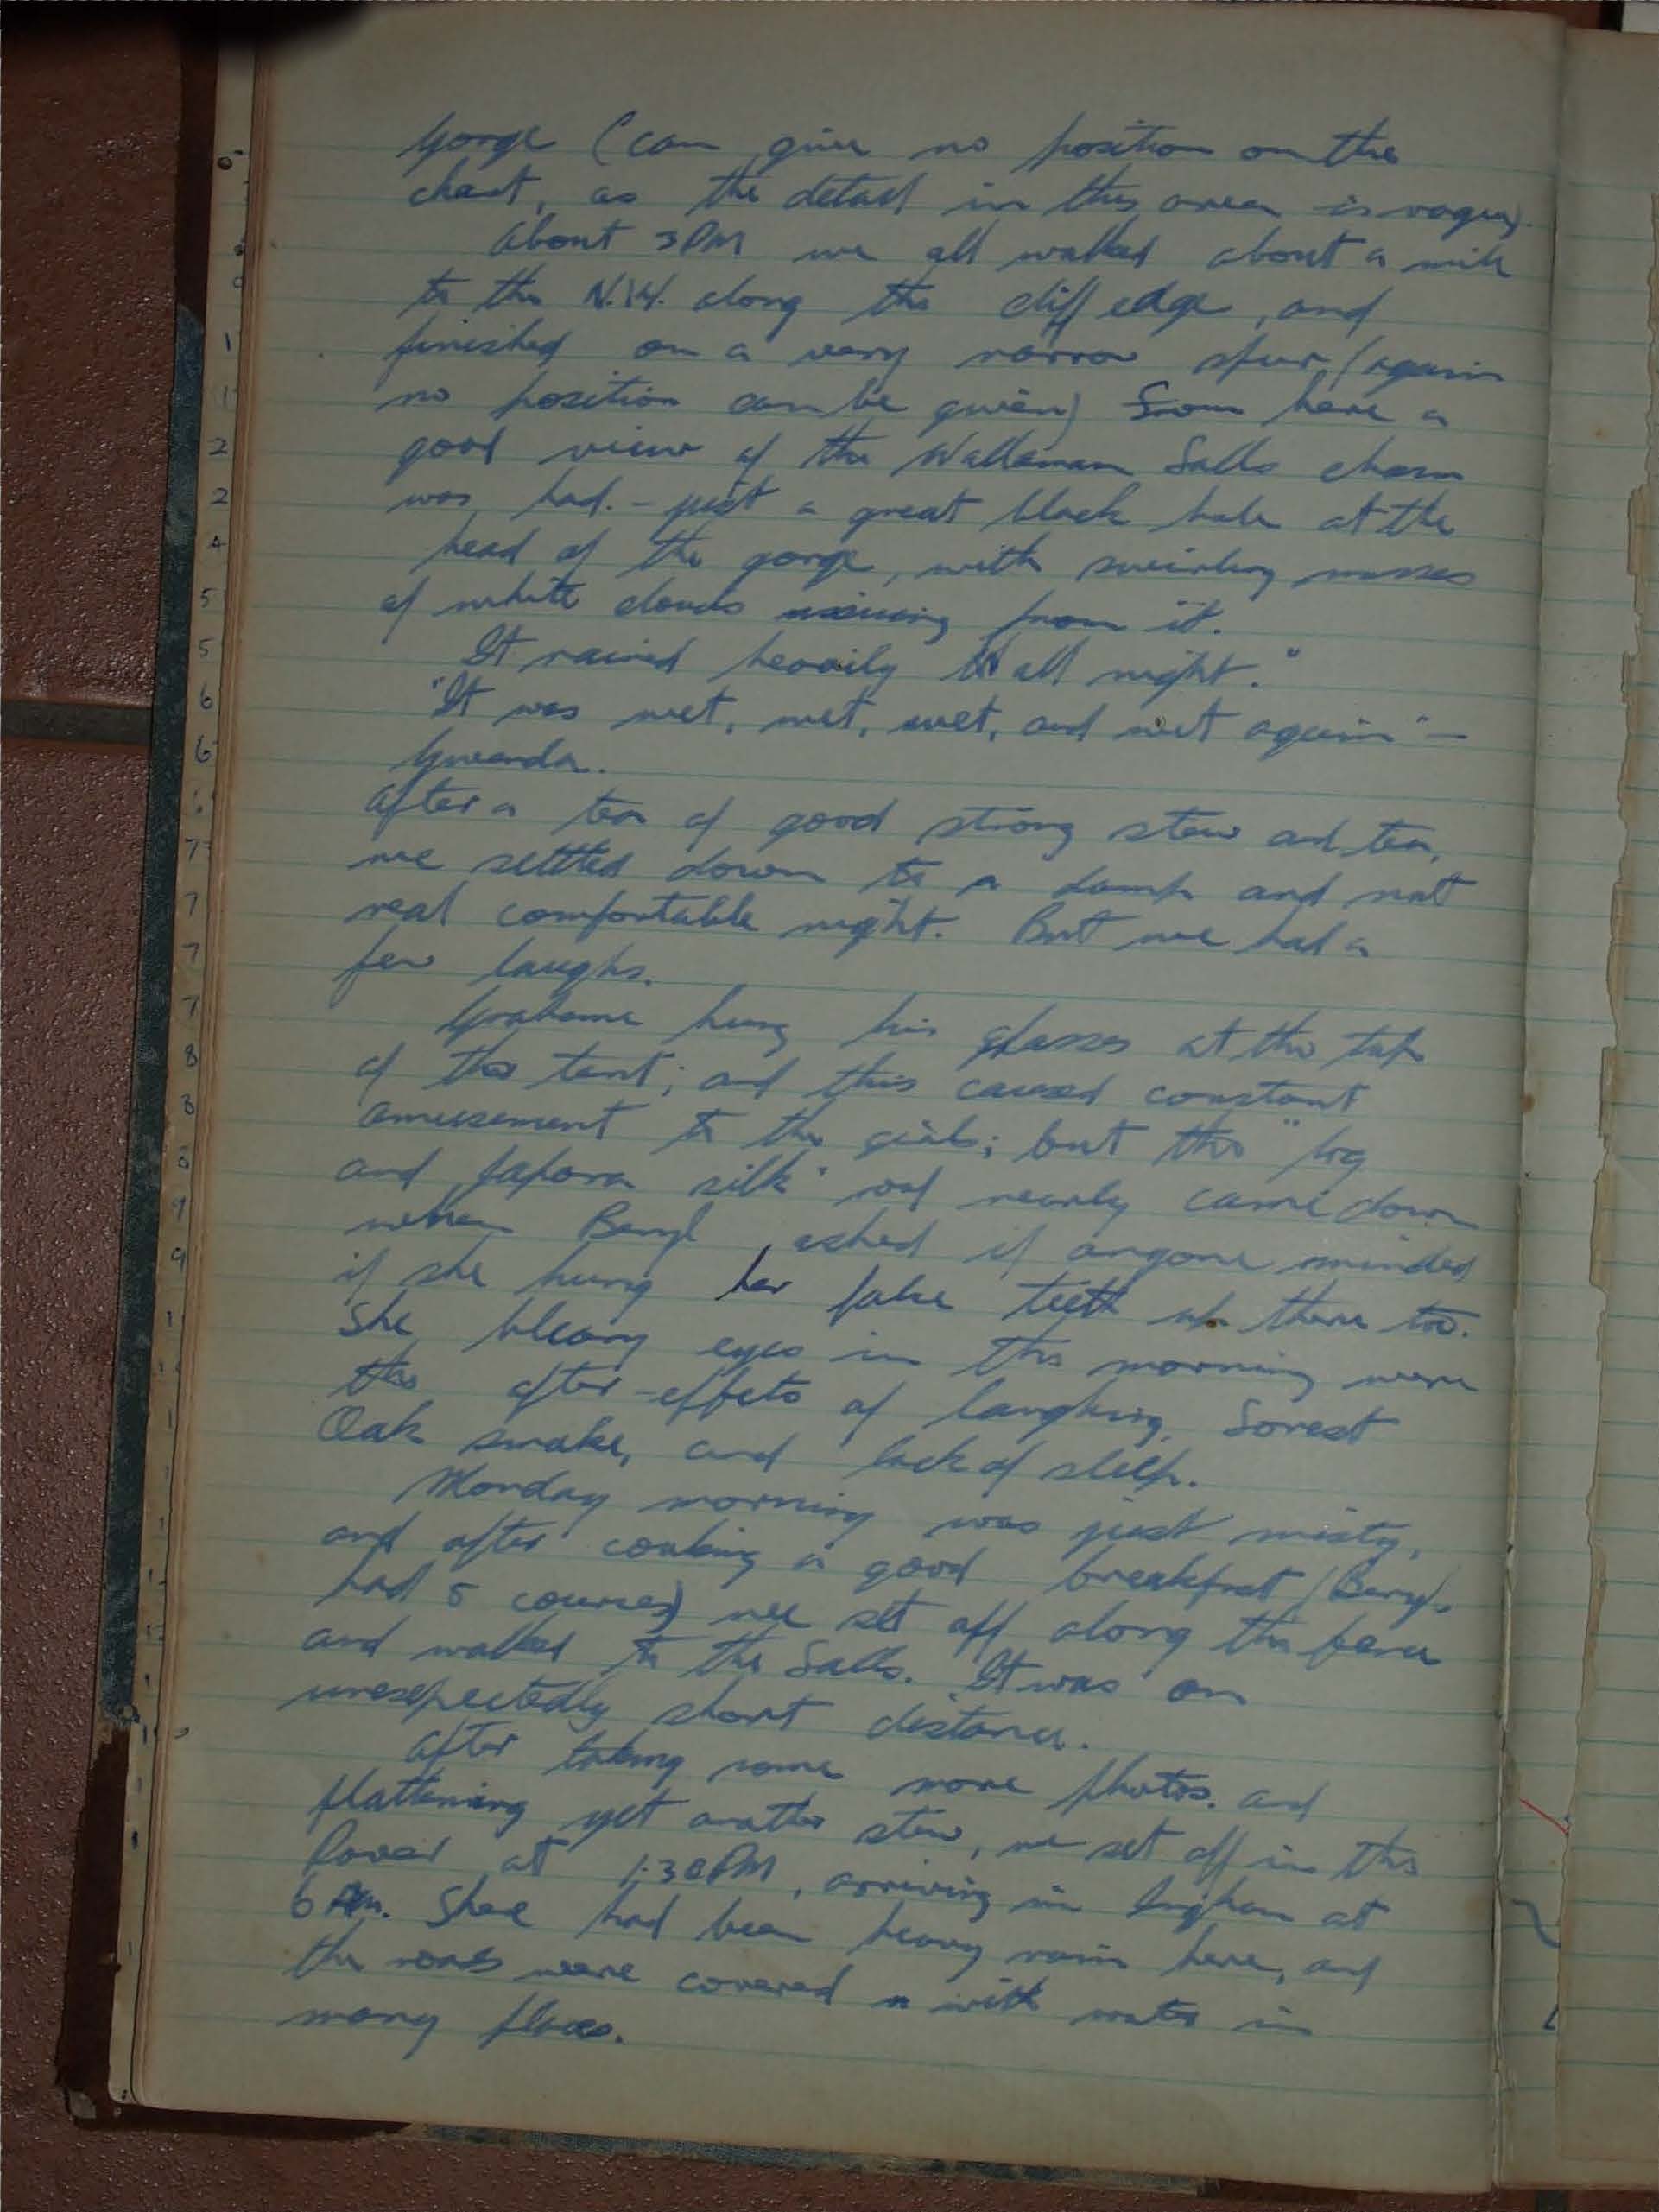 Gorge (can give no position on the
chart, as the detail in this area is vague).
About 3PM we all walked about a mile
to the N.W. along the cliff edge, and
finished on a very narrow spur (again
no position can be given) From here a
good view of the Wallaman Falls chasm
was had. - just a great black hole at the
head of the gorge, with swirling masses
of white clouds rising from it.
It rained heavily all night."
"It was wet, wet, wet, and wet again" -
Gwenda.
After a tea of good strong stew and tea,
we settled down to a damp and not
real comfortable night. But we had a
few laughs.
Grahame hung his glasses at the top
of the tent; and this caused constant
amusement to the girls; but the "log
and japara silk" roof nearly came down
when Beryl asked if anyone minded
if she hung her false teeth up there too.
The bleary eyes in the morning were
the after-effects of laughing, Forest
Oak smoke, and lack of sleep.
Monday morning was just misty,
and after cooking a good breakfast (Beryl
had 5 courses) we set off along the fence
and walked to the Falls. It was an
unexpectedly short distance.
After taking some more photos. and
flattening yet another stew, we set off in the
Rover at 1.30PM, arriving in Ingham at
6 PM. There had been heavy rain here, and
the roads were covered with water in
many places.
2
2
4
5
5
6
6
7
7
7
7
8
8
9
9